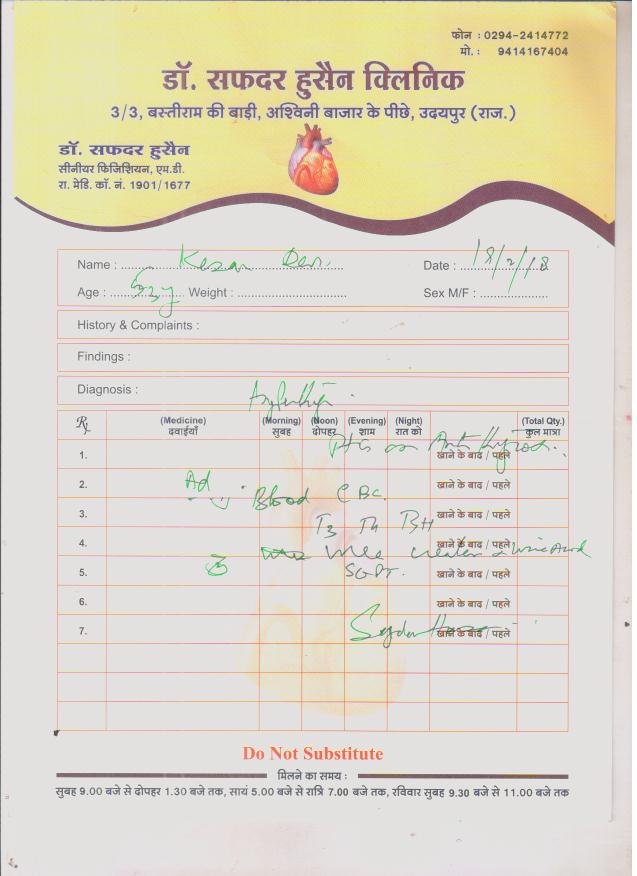 फोन : 0294-2414772
मो. : 9414167404
डॉ. सफदर हुसैन क्लिनिक
3/3, बस्तीराम की बाड़ी, अश्विनी बाजार के पीछे, उदयपुर (राज.)
डॉ. सफदर हुसैन
सीनीयर फिजिशियन, एम.डी.
रा. मेडि. कॉ. नं. 1901/1677
Name : Kesar Devi Date : 18/2/18
Age : Weight : Sex M/F :
History & Complaints :
Findings :
Diagnosis :
Rx (Medicine) (Morning) (Noon) (Evening) (Night) (Total Qty.)
दवाईयाँ सुबह दोपहर शाम रात को कुल मात्रा
on
1. खाने के बाद / पहले
2. खाने के बाद / पहले
Ad Blood CBC
3. खाने के बाद / पहले
T3 T4
4. खाने के बाद / पहले
Uric Acid
5. SGPT. खाने के बाद / पहले
6. खाने के बाद / पहले
7. खाने के बाद / पहले
Do Not Substitute
मिलने का समय :
सुबह 9.00 बजे से दोपहर 1.30 बजे तक, सायं 5.00 बजे से रात्रि 7.00 बजे तक, रविवार सुबह 9.30 बजे से 11.00 बजे तक